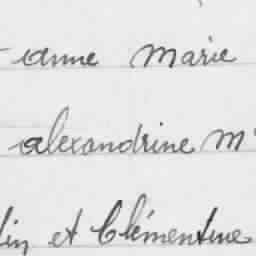 anne Marie
alexandrine M
lin et Clémentine